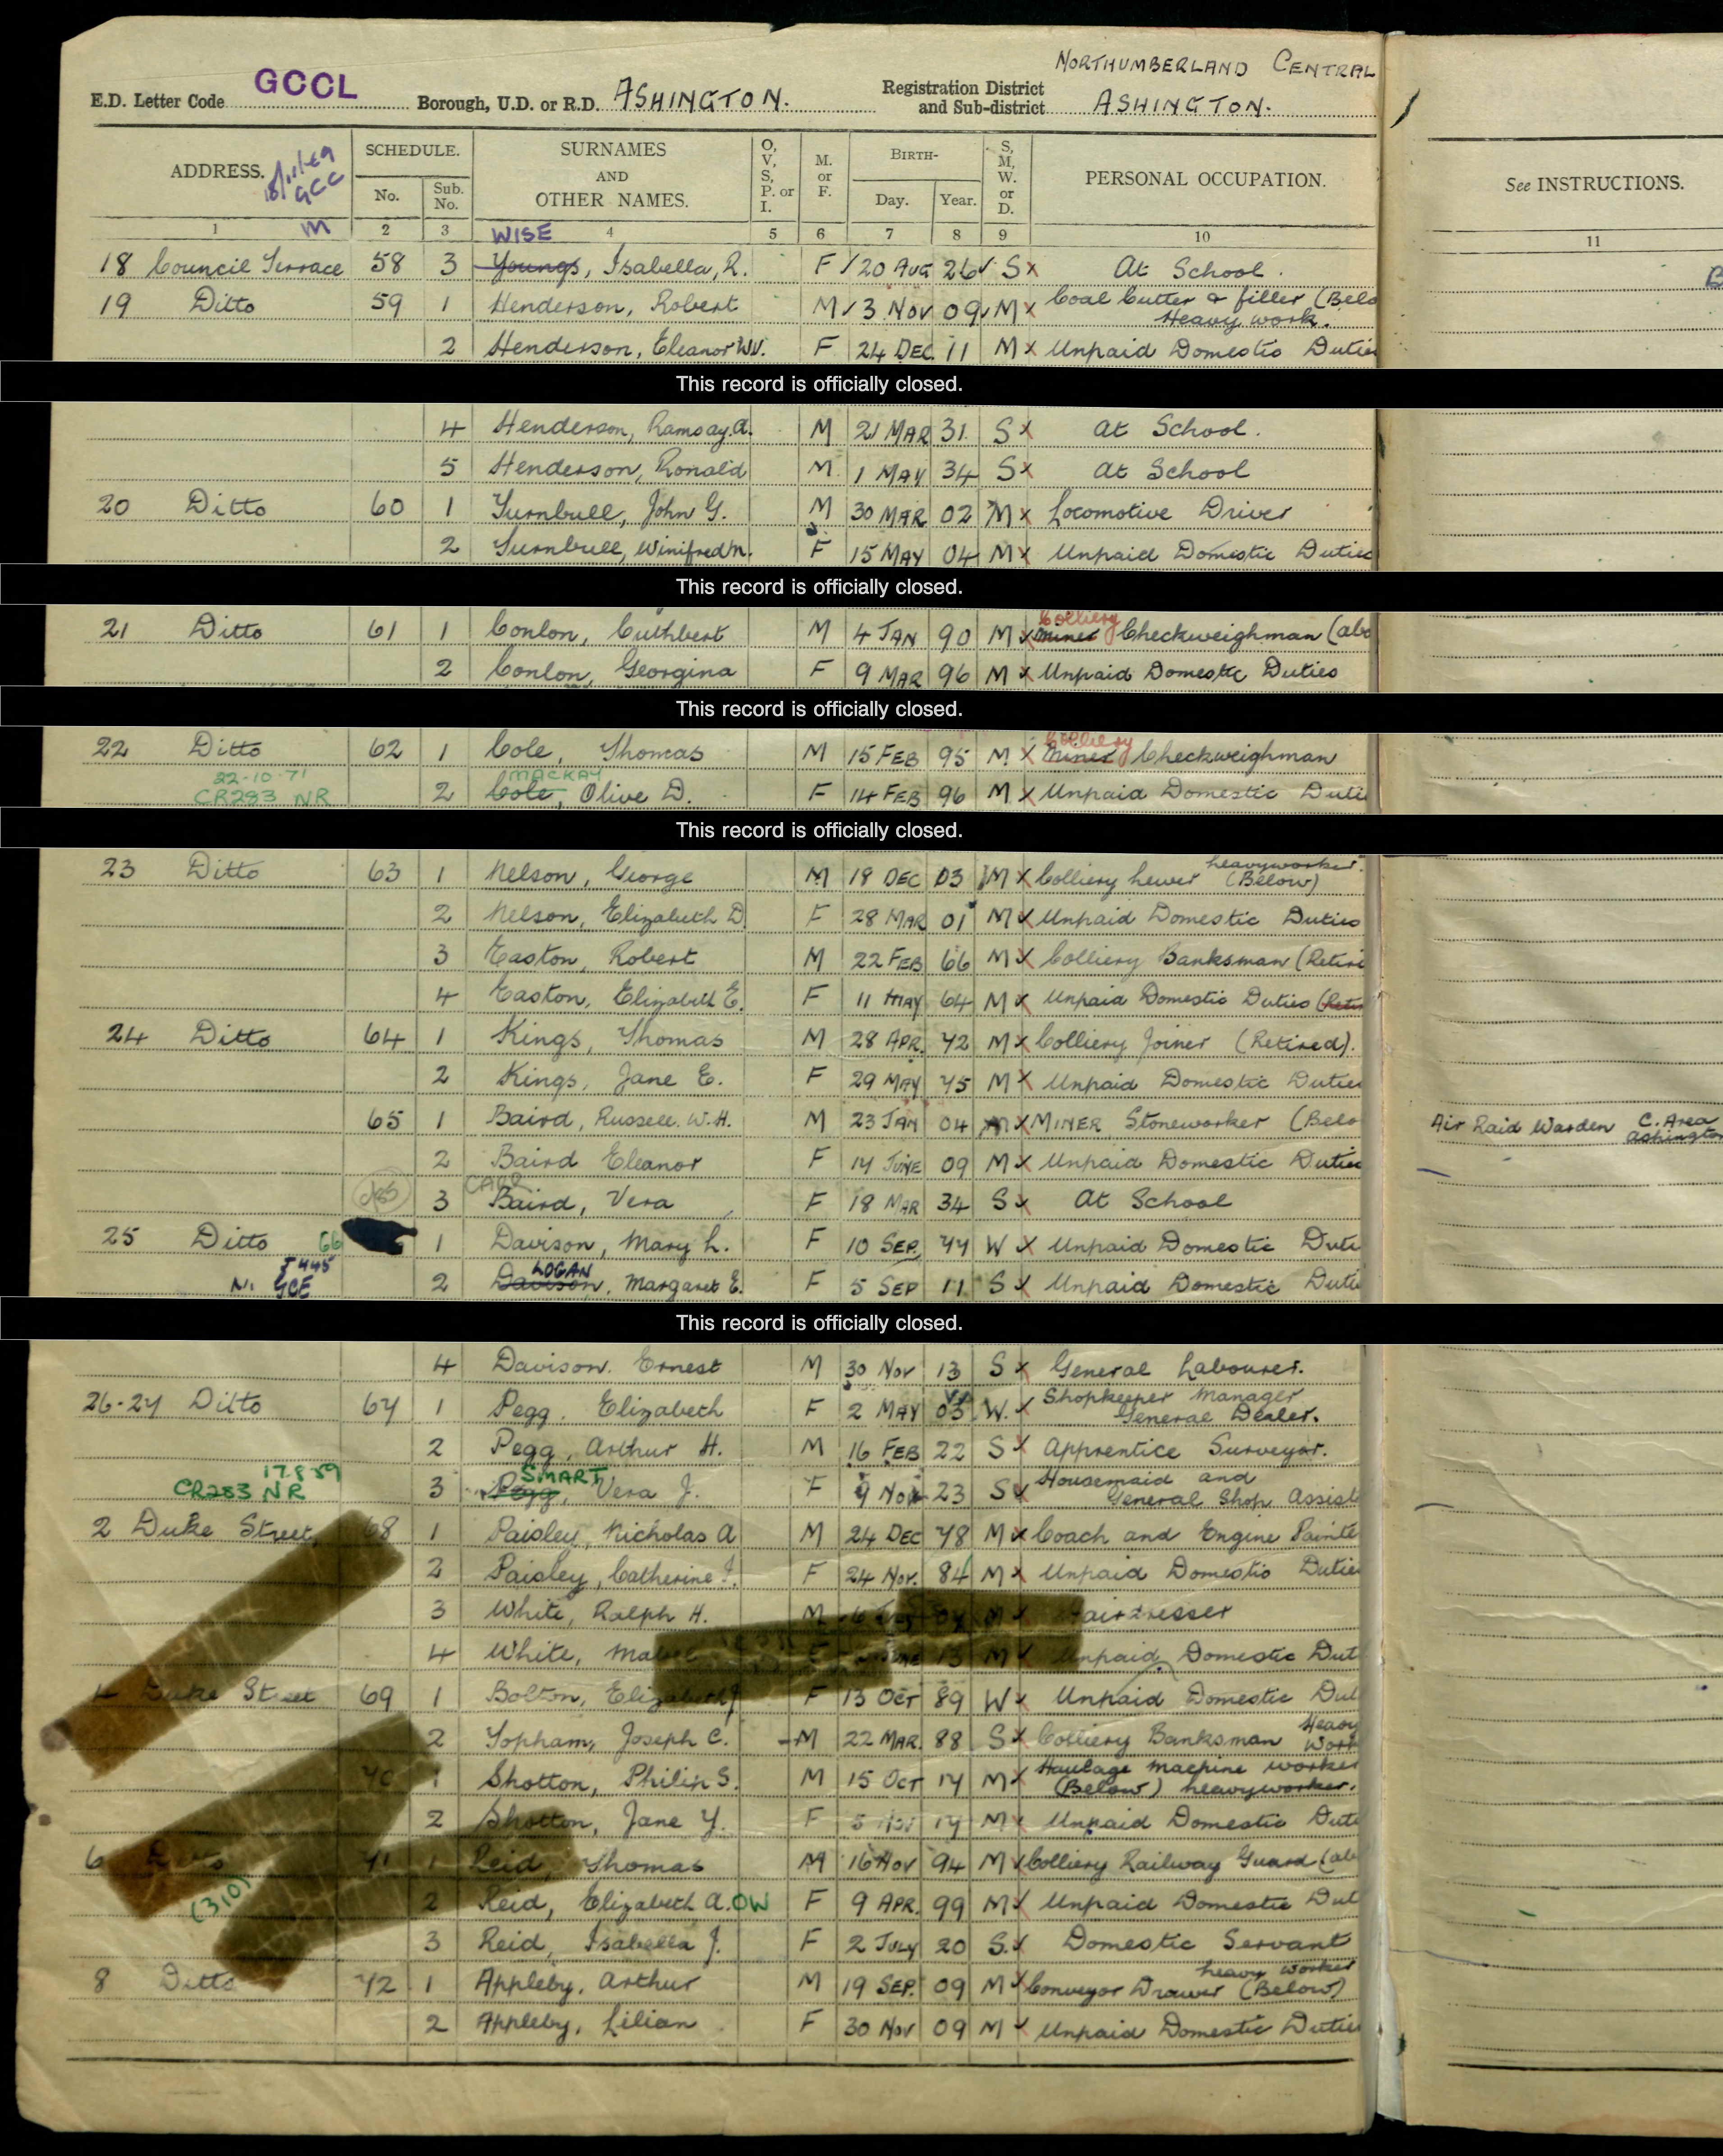 NORTHUMBERLAND CENTRAL
E.D. Letter Code GCCL Borough, U.D. or R.D. ASHINGTON. Registration District and Sub-district ASHINGTON.
ADDRESS. SCHEDULE. No. Sub. No. SURNAMES AND OTHER NAMES. O, V, S, P. or I. M. or F. BIRTH- Day. Year. S, M, W. or D. PERSONAL OCCUPATION. See INSTRUCTIONS.
GCC
M
1 2 3 4 5 6 7 8 9 10 11
WISE
18 Council Terrace 58 3 Youngs, Isabella, R. F 20 AUG 26 S x At School.
19 Ditto 59 1 Henderson, Robert M 3 NOV 09 M x Coal Cutter & filler (Belo
Heavy work.
2 Henderson, Eleanor W.V. F 24 DEC. 11 M x Unpaid Domestic Duties
This record is officially closed.
4 Henderson, Ramsay.A. M 21 MAR 31 S x At School.
5 Henderson, Ronald M. 1 MAY 34 S x At School
20 Ditto 60 1 Turnbull, John G. M 30 MAR 02 M x Locomotive Driver
2 Turnbull, Winifred M. F 15 MAY 04 M x Unpaid Domestic Duties
This record is officially closed.
21 Ditto 61 1 Conlon, Cuthbert M 4 JAN 90 M x Colliery Miner Checkweighman (abo
2 Conlon, Georgina F 9 MAR 96 M x Unpaid Domestic Duties
This record is officially closed.
22 Ditto 62 1 Cole, Thomas M 15 FEB 95 M. x Colliery Miner Checkweighman
22-10-71 MACKAY
CR283 NR 2 Cole, Olive D. F 14 FEB 96 M x Unpaid Domestic Duti
This record is officially closed.
23 Ditto 63 1 Nelson, George M 18 DEC 03 M x Colliery hewer (Below) heavyworker.
2 Nelson, Elizabeth D F 28 MAR 01 M x Unpaid Domestic Duties
3 Easton, Robert M 22 FEB 66 M x Colliery Banksman (Retire
4 Easton, Elizabeth E. F 11 MAY 64 M x Unpaid Domestic Duties (Retir
24 Ditto 64 1 Kings, Thomas M 28 APR. 72 M x Colliery Joiner (Retired).
2 Kings, Jane E. F 29 MAY 75 M x Unpaid Domestic Duties
65 1 Baird, Russell. W.H. M 23 JAN 04 M x MINER Stoneworker (Belo Air Raid Warden C. Area Ashington
2 Baird Eleanor F 14 JUNE 09 M x Unpaid Domestic Duties
3 Baird, Vera F 18 MAR 34 S x At School
25 Ditto 66 1 Davison, Mary L. F 10 SEP. 77 W x Unpaid Domestic Duti
LOGAN
2 Davison, Margaret E. F 5 SEP 11 S x Unpaid Domestic Duti
This record is officially closed.
4 Davison. Ernest M 30 NOV 13 S x General Labourer.
26-27 Ditto 67 1 Pegg. Elizabeth F 2 MAY W. x Shopkeeper Manager
General Dealer.
2 Pegg, Arthur H. M 16 FEB 22 S x Apprentice Surveyor.
17.8.59 SMART
CR283 NR 3 Pegg, Vera J. F 9 NOV 23 S x Housemaid and
General Shop Assist
2 Duke Street, 68 1 Paisley, Nicholas A M 24 DEC 78 M x Coach and Engine Painte
2 Paisley, Catherine J. F 24 NOV. 84 M x Unpaid Domestic Duties
3 White, Ralph H. M Hairdresser
4 White, Mabel F JUNE 13 M Unpaid Domestic Dut
4 Duke Street 69 1 Bolton, Elizabeth J F 13 OCT 89 W x Unpaid Domestic Dut
2 Topham, Joseph C. M 22 MAR. 88 S x Colliery Banksman Heavy Work
70 1 Shotton, Philip S. M 15 OCT 17 M x Haulage machine worker
(Below) heavyworker.
2 Shotton, Jane Y. F 5 NOV 17 M x Unpaid Domestic Duti
6 Ditto 71 1 Reid, Thomas M 16 NOV 94 M x Colliery Railway Guard (ab
(310) 2 Reid, Elizabeth A. OW F 9 APR. 99 M x Unpaid Domestic Dut
3 Reid, Isabella J. F 2 JULY 20 S. x Domestic Servant
8 Ditto 72 1 Appleby, Arthur M 19 SEP. 09 M x Conveyor Drawer (Below) heavy worker
2 Appleby, Lilian F 30 NOV 09 M x Unpaid Domestic Duties